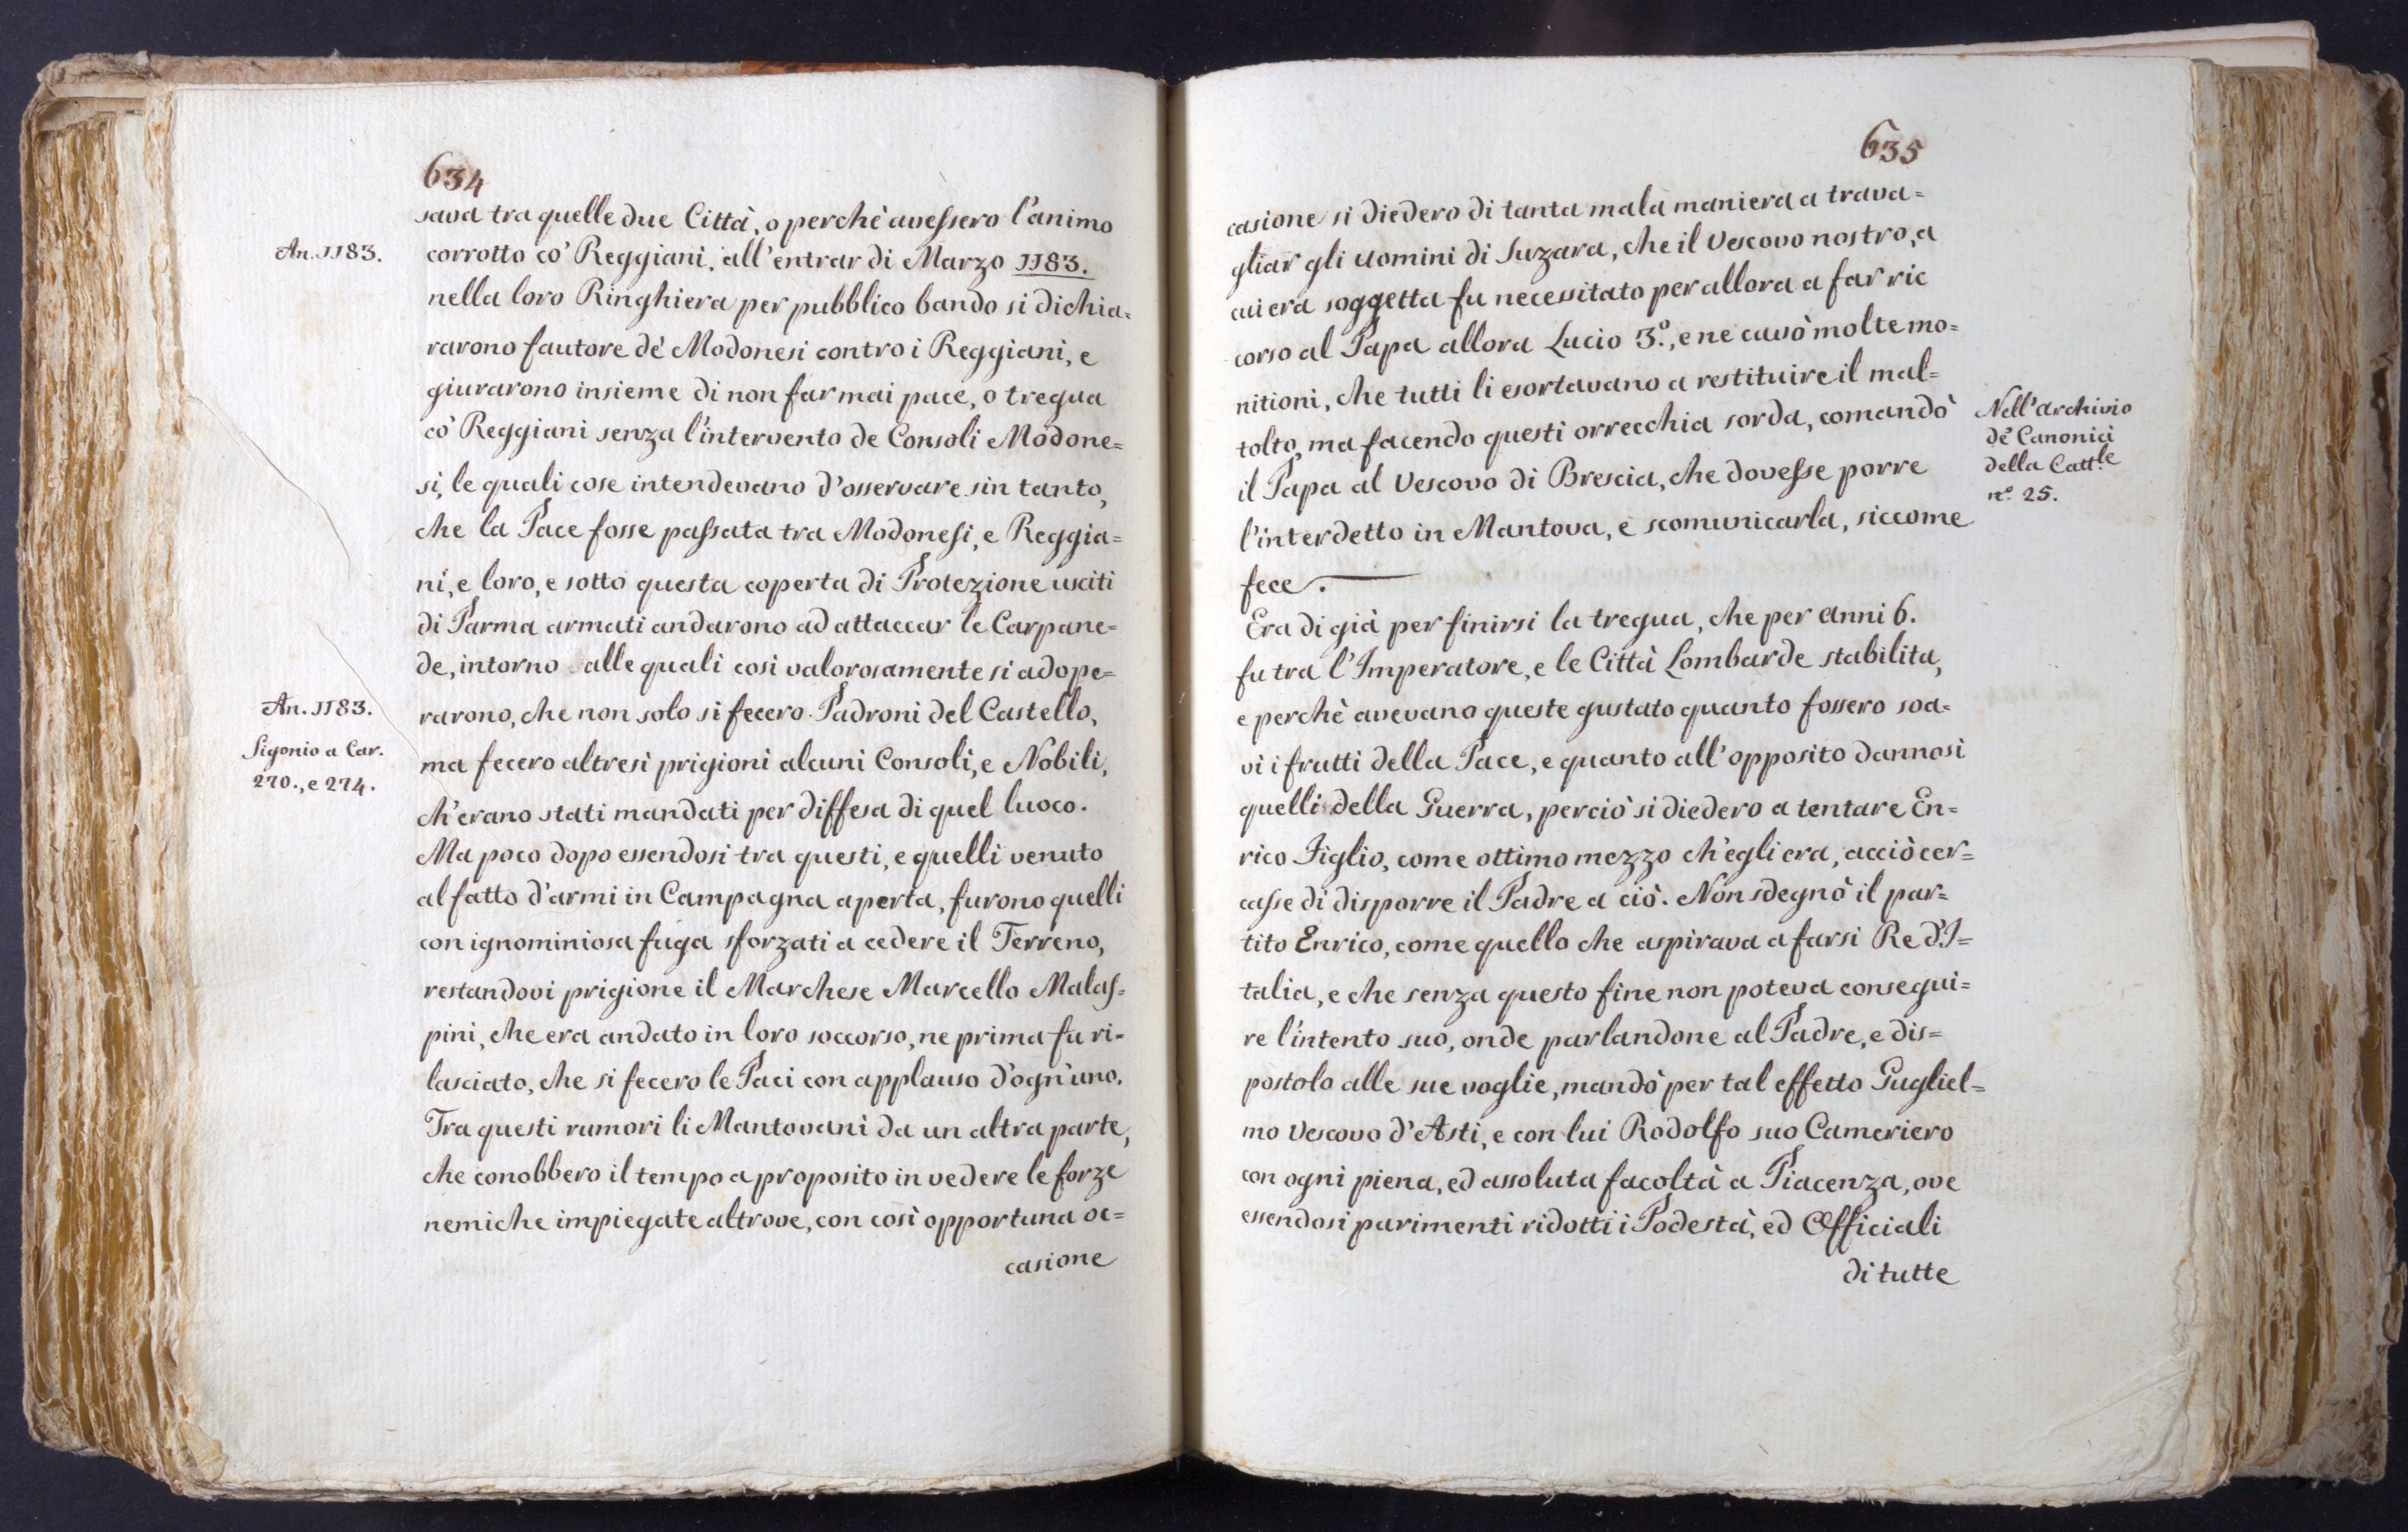 634
sava tra quelle due Città, o perchè avessero l'animo
An. 1183.
corrotto co' Reggiani, all'entrar di Marzo 1183.
nella loro Ringhiera per pubblico bando si dichia=
rarono fautore de' Modonesi contro i Reggiani, e
giurarono insieme di non far mai pace, o tregua
co' Reggiani senza l'intervento de Consoli Modone=
si, le quali cose intendevano d'osservare sin tanto,
che la Pace fosse passata tra Modonesi, e Reggia=
ni, e loro, e sotto questa coperta di Protezione usciti
di Parma armati andarono ad attaccar le Carpane=
de, intorno alle quali così valorosamente si adope=
An. 1183.
rarono, che non solo si fecero Padroni del Castello,
Sigonio a Car.
270., e 274.
ma fecero altresì prigioni alcuni Consoli, e Nobili,
ch'erano stati mandati per diffesa di quel luoco.
Ma poco dopo essendosi tra questi, e quelli venuto
al fatto d'armi in Campagna aperta, furono quelli
con ignominiosa fuga sforzati a cedere il Terreno,
restandovi prigione il Marchese Marcello Malas=
pini, che era andato in loro soccorso, ne prima fu ri=
lasciato, che si fecero le Paci con applauso d'ogn'uno.
Tra questi rumori li Mantovani da un altra parte,
che conobbero il tempo a proposito in vedere le forze
nemiche impiegate altrove, con così opportuna oc=
casione
635
casione si diedero di tanta mala maniera a trava=
gliar gli uomini di Suzara, che il Vescovo nostro, a
cui era soggetta fu necessitato per allora a far ric
corso al Papa allora Lucio 3.º, e ne cavò molte mo=
nitioni, che tutti li esortavano a restituire il mal=
tolto, ma facendo questi orrecchia sorda, comandò
il Papa al Vescovo di Brescia, che dovesse porre
l'interdetto in Mantova, e scomunicarla, siccome
fece.
Nell'archivio
de' Canonici
della Catt.le
n.º 25.
Era di già per finirsi la tregua, che per anni 6.
fu tra l'Imperatore, e le Città Lombarde stabilita,
e perchè avevano queste gustato quanto fossero soa=
vi i frutti della Pace, e quanto all'opposito dannosi
quelli della Guerra, perciò si diedero a tentare En=
rico Figlio, come ottimo mezzo ch'egli era, acciò cer=
casse di disporre il Padre a ciò. Non sdegnò il par=
tito Enrico, come quello che aspirava a farsi Re d'I=
talia, e che senza questo fine non poteva consegui=
re l'intento suo, onde parlandone al Padre, e dis=
postolo alle sue voglie, mandò per tal effetto Gugliel=
mo Vescovo d'Asti, e con lui Rodolfo suo Cameriero
con ogni piena, ed assoluta facoltà a Piacenza, ove
essendosi parimenti ridotti i Podestà, ed Officiali
di tutte